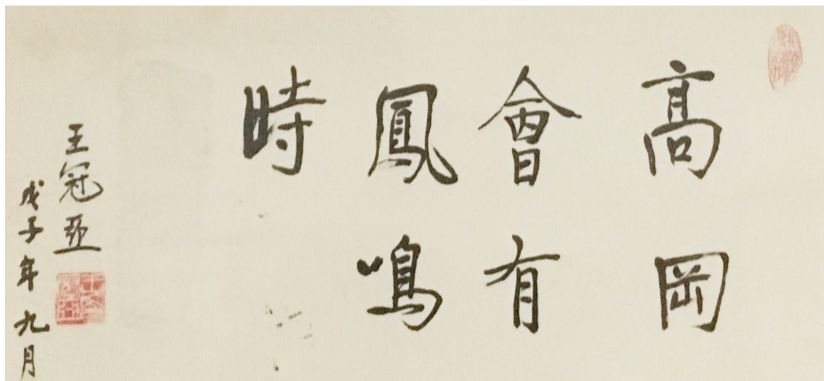 高岡
會有
鳳鳴
時
王冠亞
戊子年九月